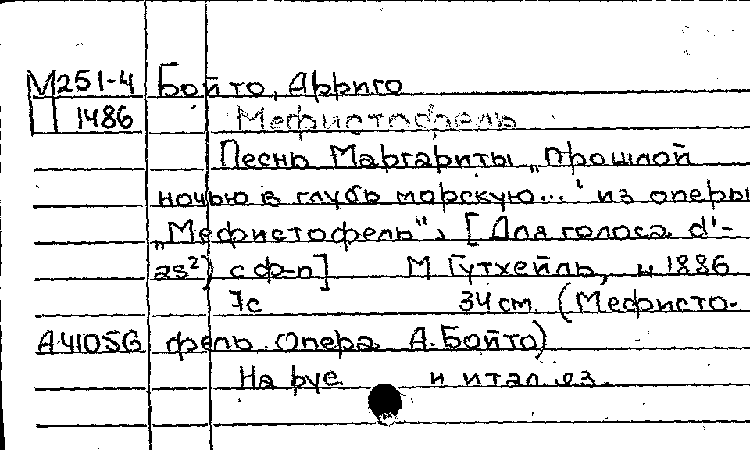 М251-4 Бойто, Арриго
1486 Мефистофель
Песнь Маргариты „Прошлой
ночью в глубь морскую..." из оперы
„Мефистофель". [Для голоса d'-
as²) с ф-п] М Гутхейль, ц 1886
7с 34см. (Мефисто-
А41056 фель. Опера А. Бойто)
На рус и итал яз.